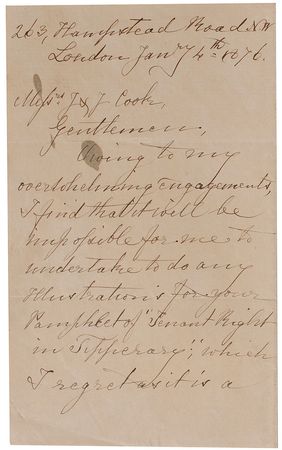 263, Hampstead Road N.W.
London Jany 4th 1876.
Messrs J & J Cook,
Gentlemen,
Owing to my
overwhelming engagements,
I find that it will be
impossible for me to
undertake to do any
Illustrations for your
Pamphlet of "Tenant Right
in Tipperary", which
I regret as it is a